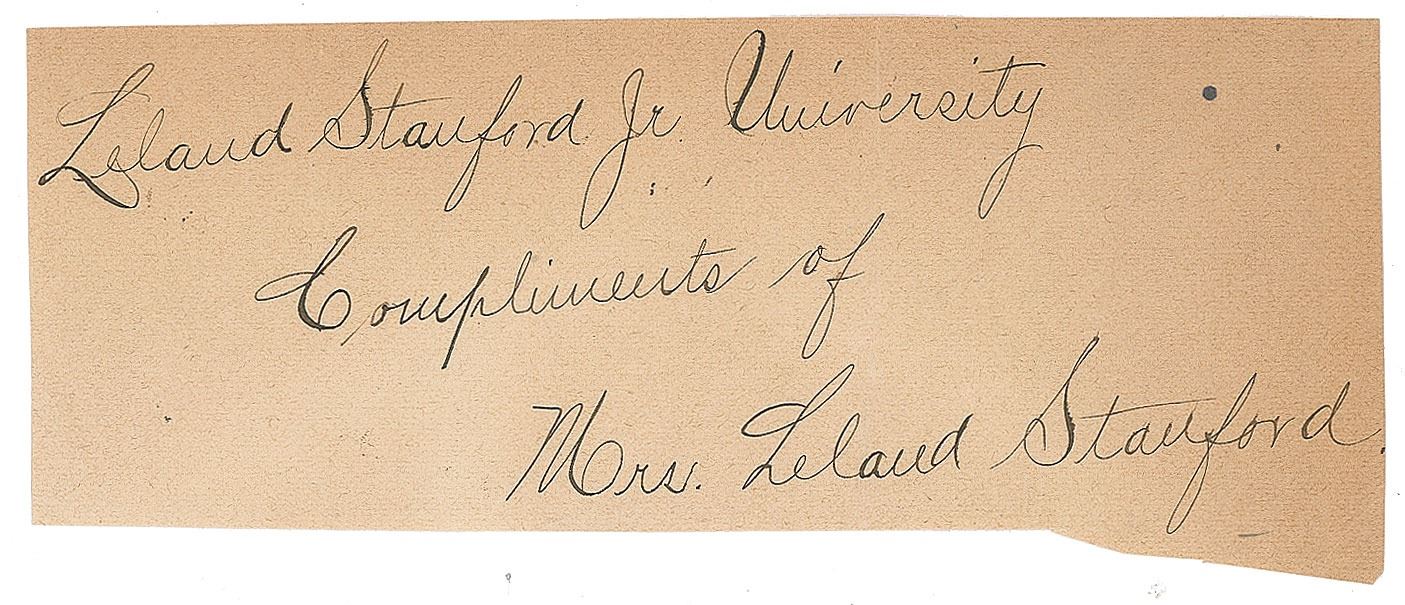 Leland Stanford Jr. University
Compliments of
Mrs. Leland Stanford.